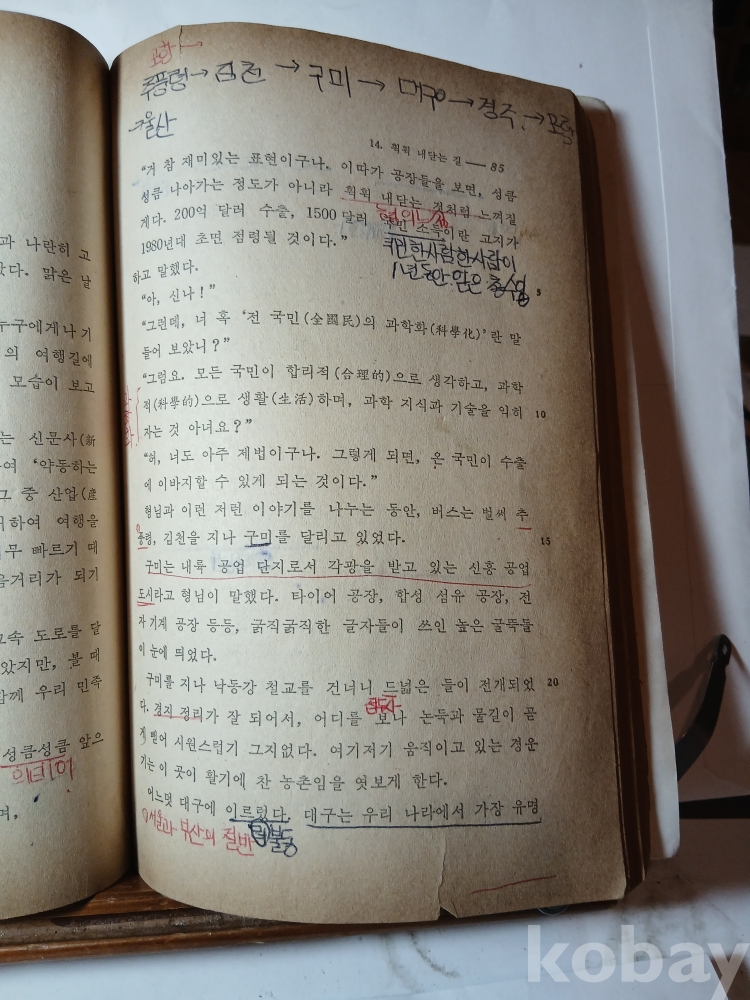 추풍령→김천→구미→대구→경주→포항
→울산
14. 휙휙 내닫는 길 — 85
“거 참 재미있는 표현이구나. 이따가 공장들을 보면, 성큼
성큼 나아가는 정도가 아니라 휙휙 내닫는 것처럼 느껴질
게다. 200억 달러 수출, 1500달러 국민 소득이란 고지가
국민 한사람 한사람이
1980년대 초면 점령될 것이다.”
1년동안 얻은 총수입
하고 말했다.
5
“아, 신나!”
“그런데, 너 혹 ‘전 국민(全國民)의 과학화(科學化)’란 말
들어 보았니?”
“그럼요. 모든 국민이 합리적(合理的)으로 생각하고, 과학
적(科學的)으로 생활(生活)하며, 과학 지식과 기술을 익히 10
자는 것 아녀요?”
“허, 너도 아주 제법이구나. 그렇게 되면, 온 국민이 수출
에 이바지할 수 있게 되는 것이다.”
형님과 이런 저런 이야기를 나누는 동안, 버스는 벌써 추
풍령, 김천을 지나 구미를 달리고 있었다. 15
구미는 내륙 공업 단지로서 각광을 받고 있는 신흥 공업
도시라고 형님이 말했다. 타이어 공장, 합성 섬유 공장, 전
자 기계 공장 등등, 굵직굵직한 글자들이 쓰인 높은 굴뚝들
이 눈에 띄었다.
구미를 지나 낙동강 철교를 건너니 드넓은 들이 전개되었 20
다. 경지 정리가 잘 되어서, 어디를 보나 논둑과 물길이 곧
게 벋어 시원스럽기 그지없다. 여기저기 움직이고 있는 경운
기는 이 곳이 활기에 찬 농촌임을 엿보게 한다.
어느덧 대구에 이르렀다. 대구는 우리 나라에서 가장 유명
서울과 부산의 절반
과 나란히 고
났다. 맑은 날
누구에게나 기
의 여행길에
모습이 보고
는 신문사(新
여 ‘약동하는
그 중 산업(産
하여 여행을
무 빠르기 때
음거리가 되기
그속 도로를 달
았지만, 볼 때
함께 우리 민족
성큼성큼 앞으
의태어
며,
kobay